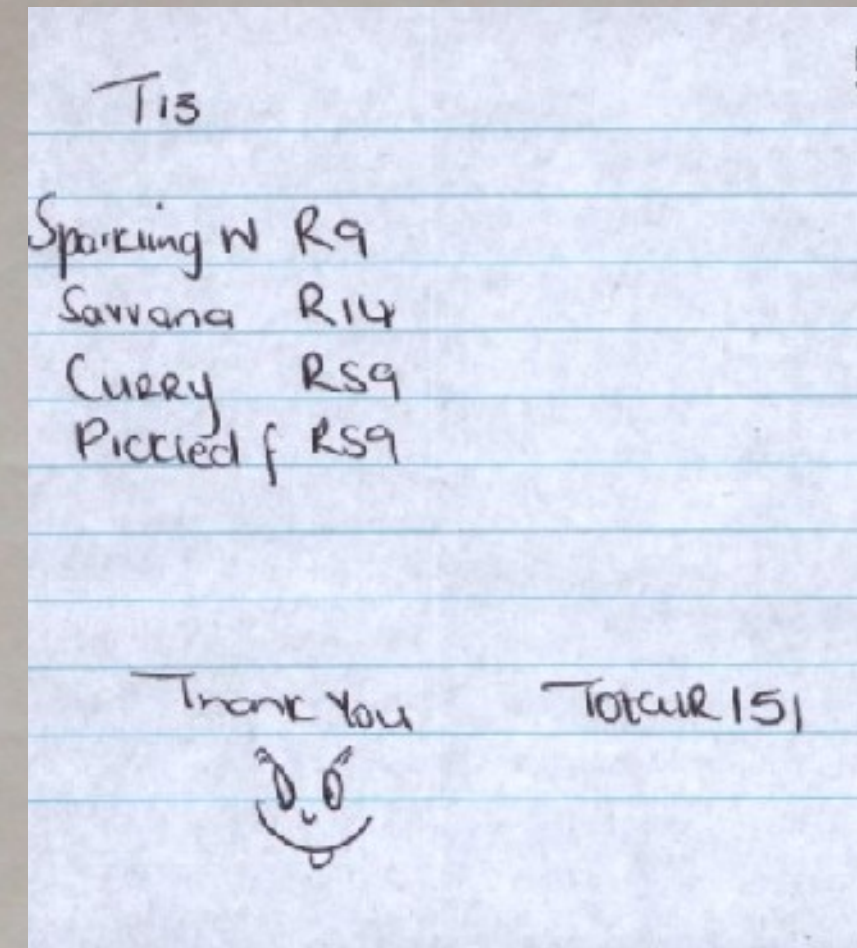 T13
Sparkling W R9
Savvana R14
Curry R59
Pickled f R59
Thank You Total R151